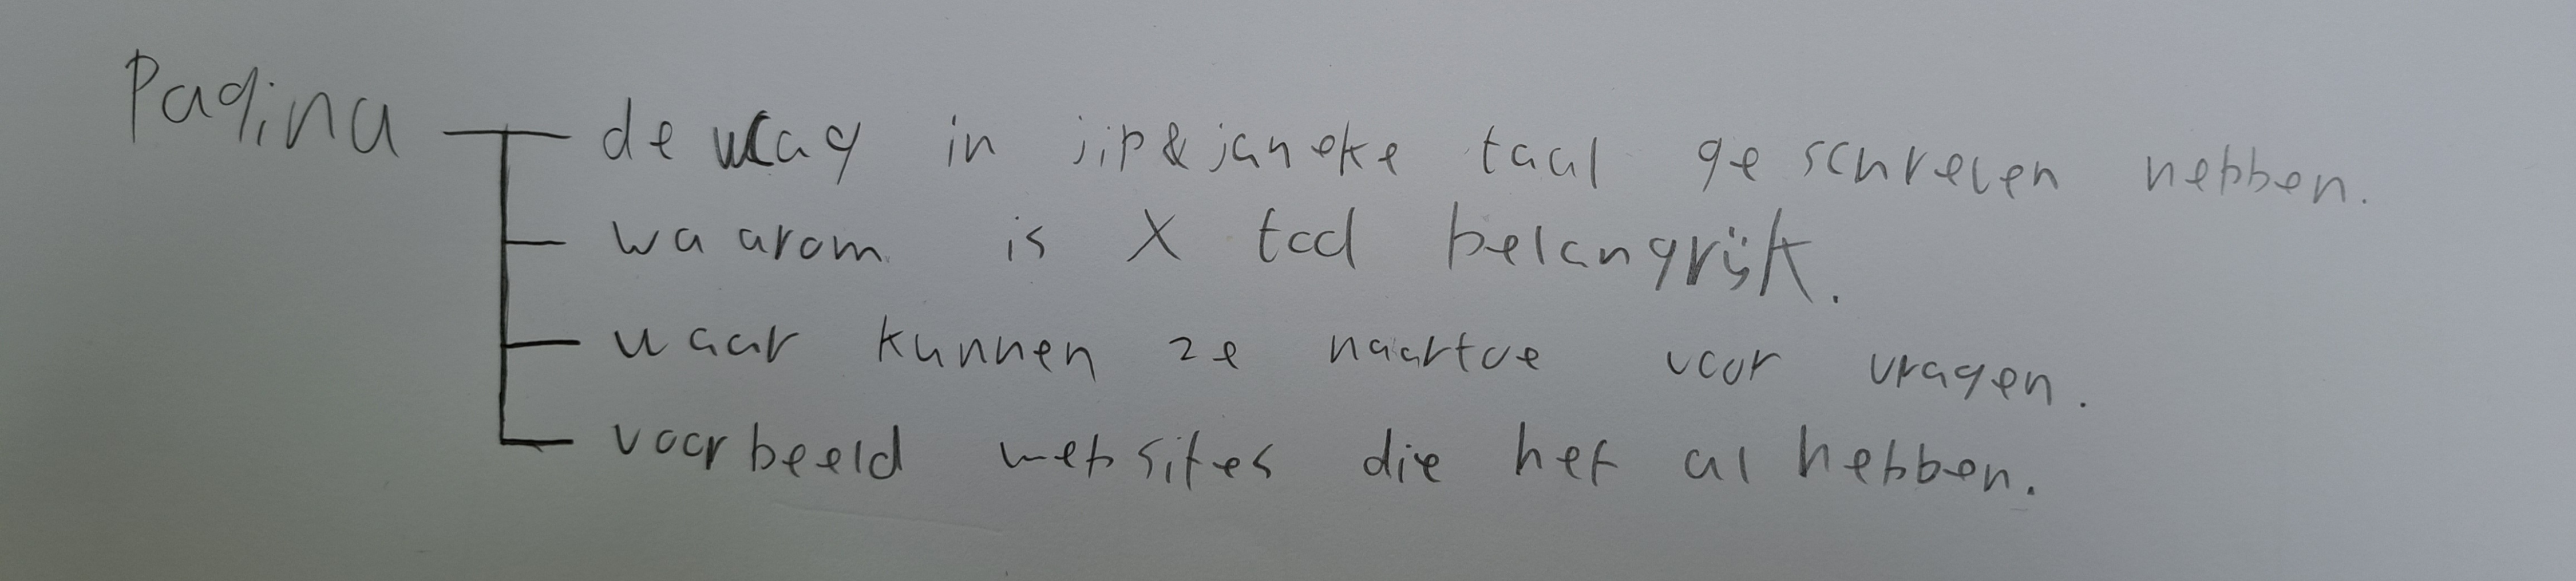 Pagina
de wcag in jip&janeke taal geschreven hebben.
waarom is X tool belangrijk.
waar kunnen ze naartoe voor vragen.
voorbeeld websites die het al hebben.